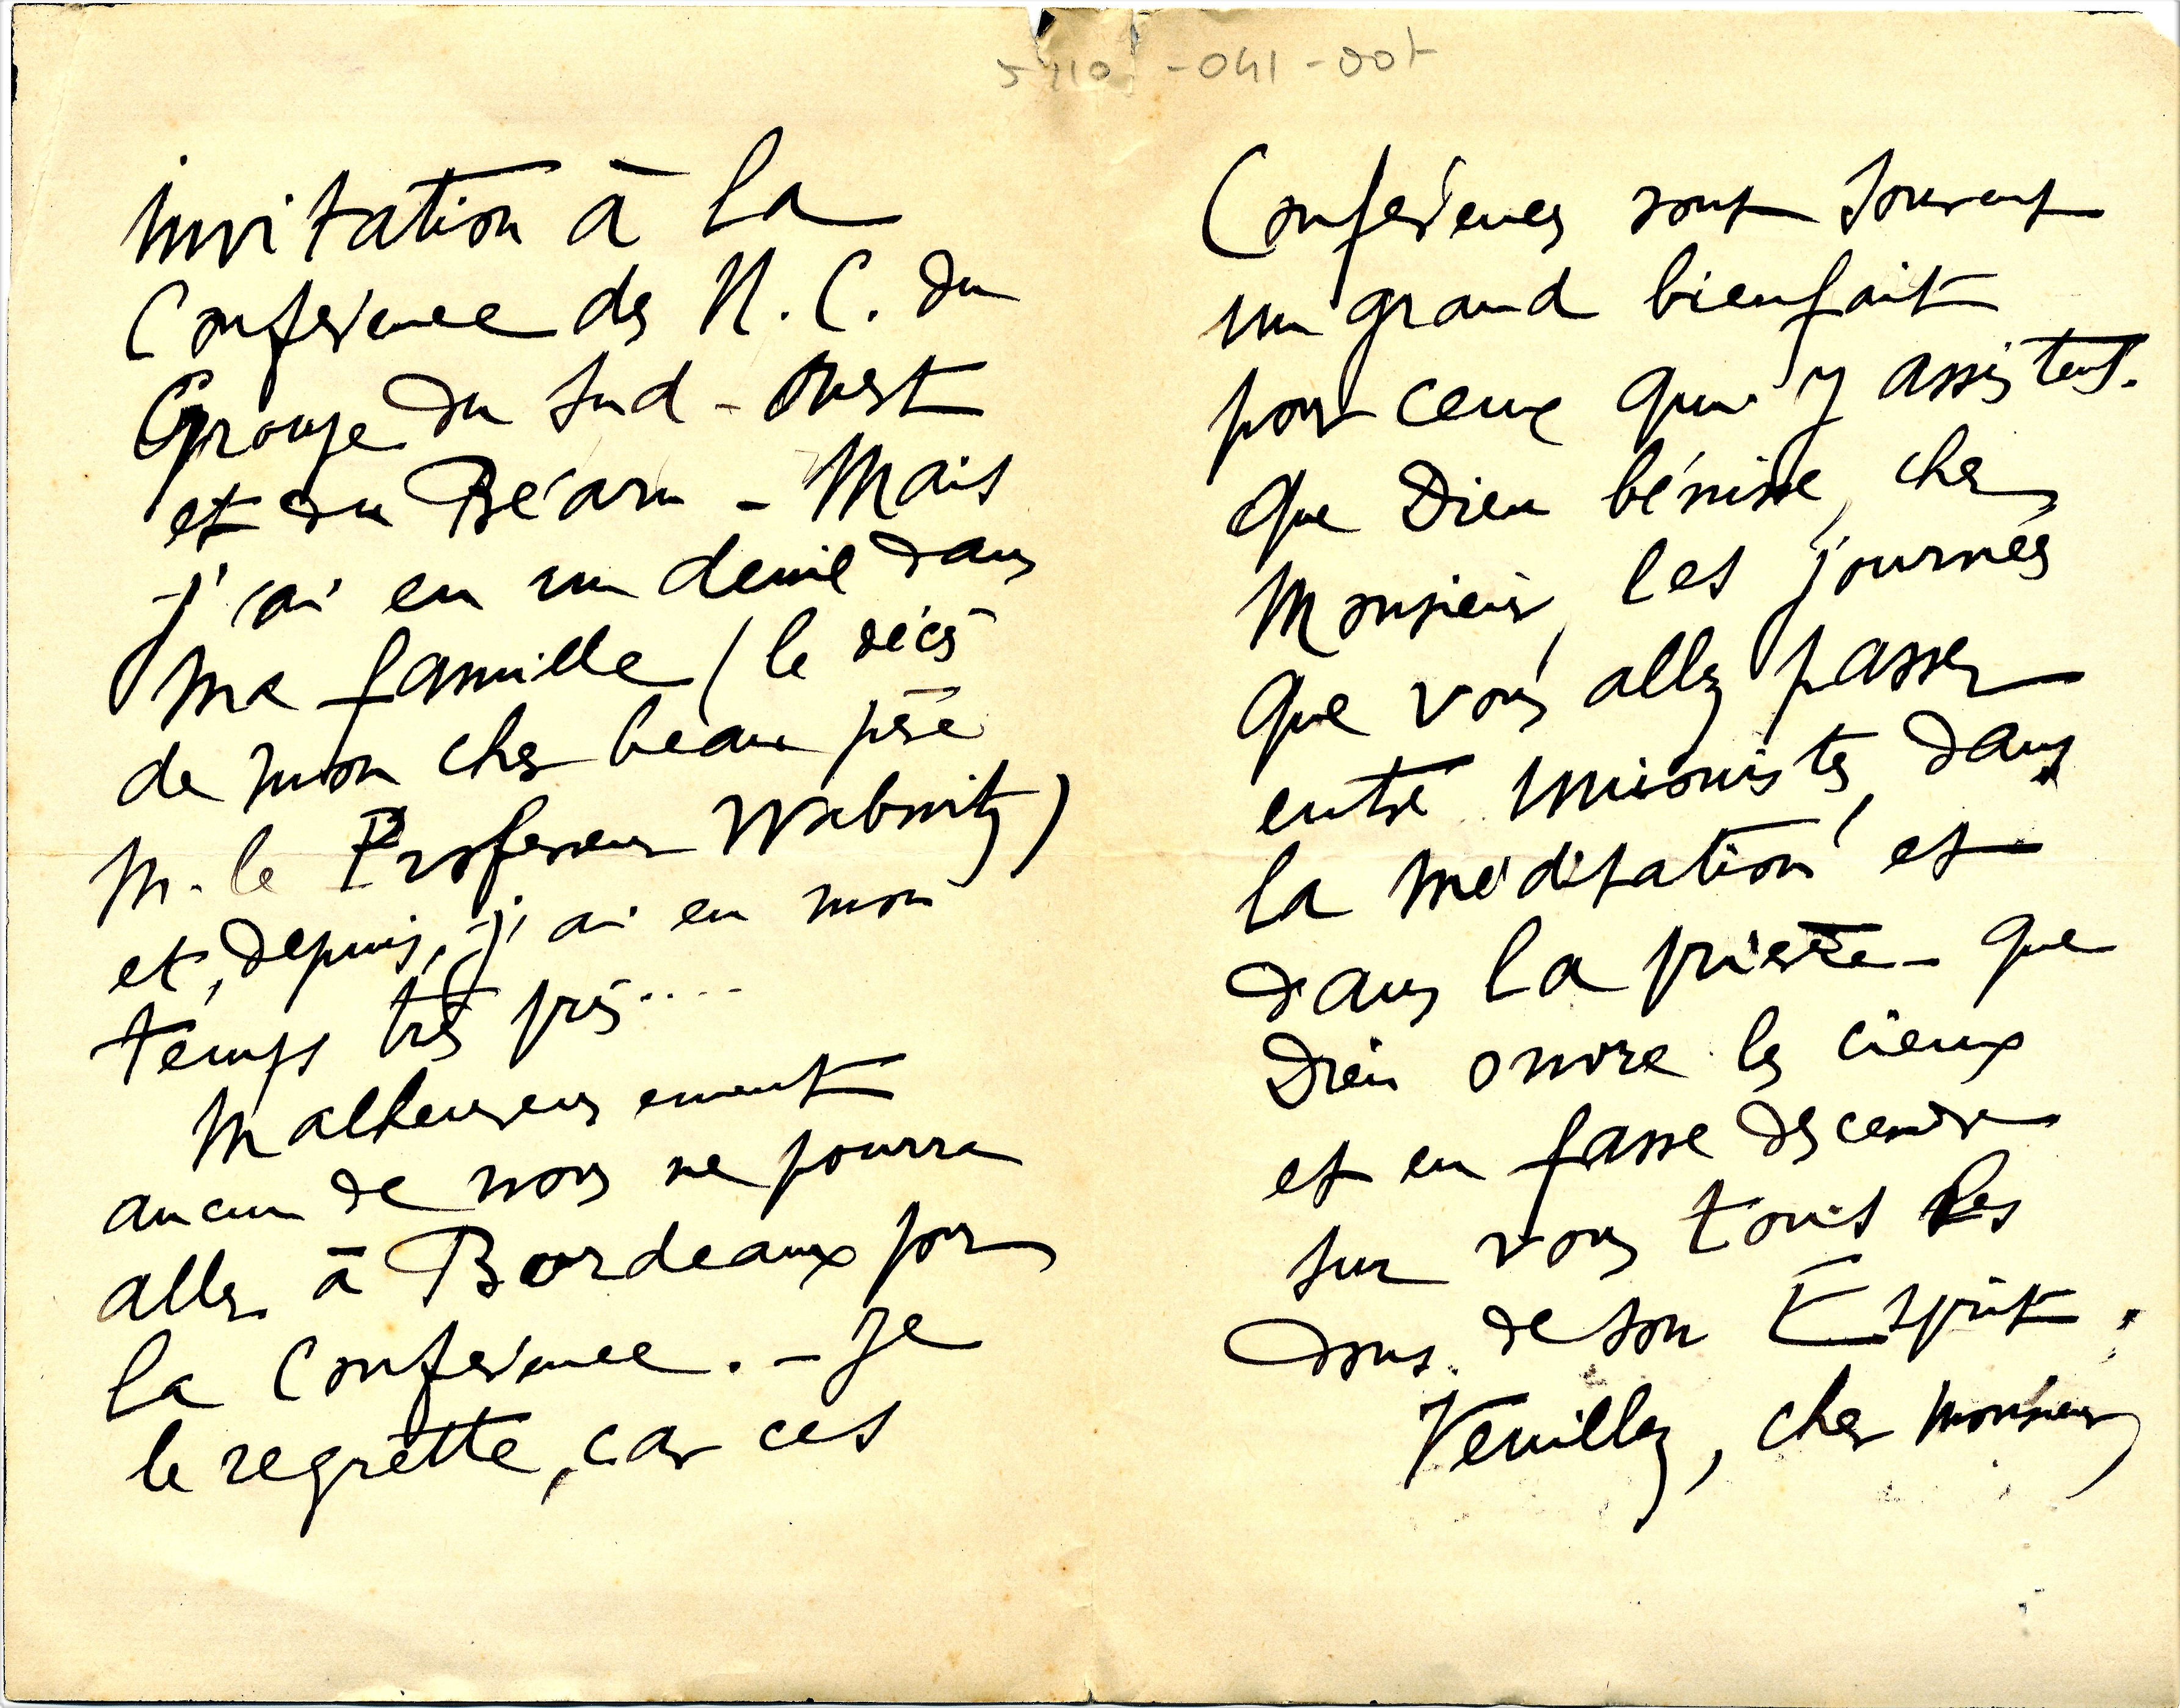 invitation à la
Conférence des N. C. du
Groupe du Sud-Ouest
et du Béarn - Mais
j'ai eu un deuil dans
ma famille (le décès
de mon cher beau père
M. le Professeur Wabnitz)
et, depuis, j'ai eu mon
temps très pris....
Malheureusement
aucun de nous ne pourra
aller à Bordeaux pour
la Conférence. - Je
le regrette, car ces
5410 - 041 - 007
Conférences sont souvent
un grand bienfait
pour ceux qui y assistent.
Que Dieu bénisse, cher
Monsieur, les journées
que vous allez passer
entre unionistes, dans
la méditation et
dans la prière - que
Dieu ouvre les cieux
et en fasse descendre
sur vous tous les
dons de son Esprit.
Veuillez, cher Monsieur,